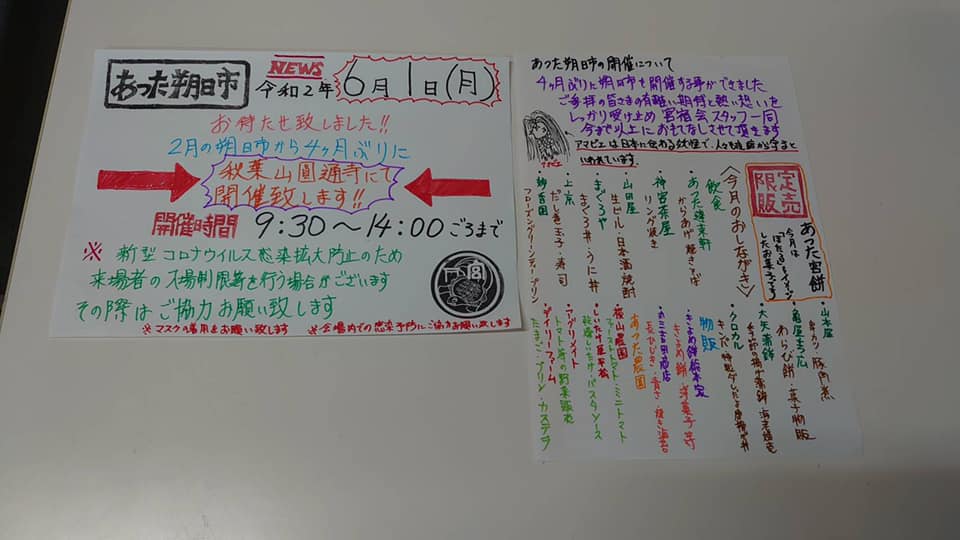 あった朔日市
NEWS
令和2年 6月1日(月)
お待たせ致しました!!
2月の朔日市から4ヶ月ぶりに
秋葉山圓通寺にて
開催致します!!
開催時間 9:30〜14:00ごろまで
※新型コロナウイルス感染拡大防止のため
来場者の入場制限等を行う場合がございます
その際はご協力お願い致します
※マスク着用をお願い致します ※会場内での感染予防にご協力お願い致します
あった朔日市の開催について
4ヶ月ぶりに朔日市を開催する事ができました
ご参拝の皆さまの有難い期待と熱い想いを
しっかり受け止め 宮宿会スタッフ一同
今まで以上におもてなしさせて頂きます
アマビエは日本に伝わる妖怪で、人々を疫病から守ると
いわれています。
限定
販売
あった宮餅
今月は
したお菓子です
<今月のおしながき>
飲食
・あった蓬莱軒
からあげ 焼きそば
・神宮茶屋
リング焼き
・山田屋
生ビール・日本酒 焼酎
・まぐろや
まぐろ丼・うに丼
・上京
だし巻玉子・寿司
・妙香園
フローズングリーンティー プリン
・山本屋
串カツ 豚角煮
・亀屋芳広
わらび餅・菓子物販
・大矢蒲鉾
・クロカル
物販
・きよめ餅総本家
きよめ餅・洋菓子等
長ひじき・青さ・焼き海苔
あった農園
・横山農園
ミニトマト
パスタソース
・アグリサイト
トマト等の野菜販売
・デイリーファーム
たまご・プリン・カステラ